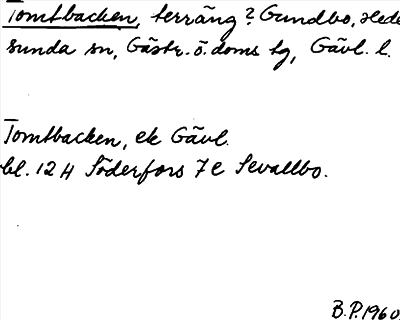 Tomtbacken, terräng? Gundbo, Hede
sunda sn, Gästr. ö. doms lg, Gävl. l.
Tomtbacken, ek Gävl.
bl. 12 H Söderfors 7 e Sevallbo.
B.P. 1960.